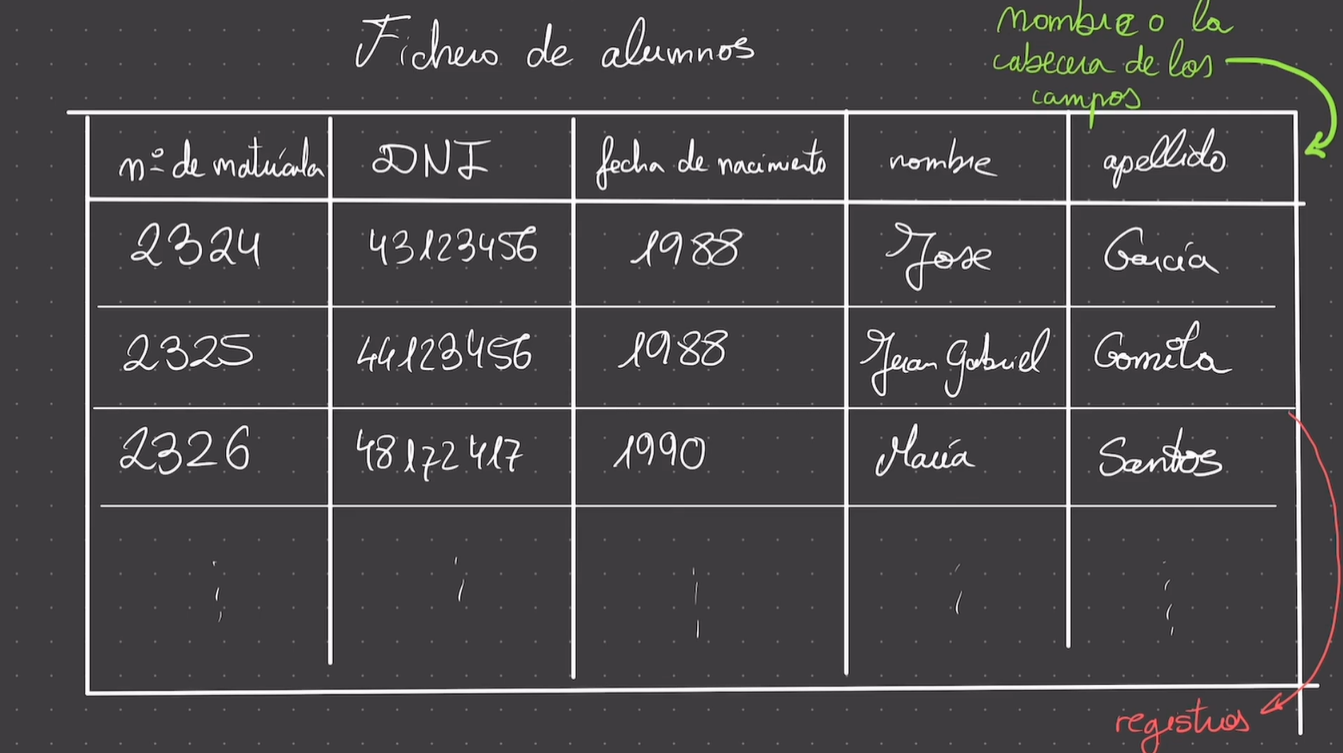 Fichero de alumnos
nombre o la
cabecera de los
campos
nº de matrícula DNI fecha de nacimiento nombre apellido
2324 43123456 1988 Jose García
2325 44123456 1988 Juan Gabriel Gomila
2326 48172417 1990 María Santos
registros